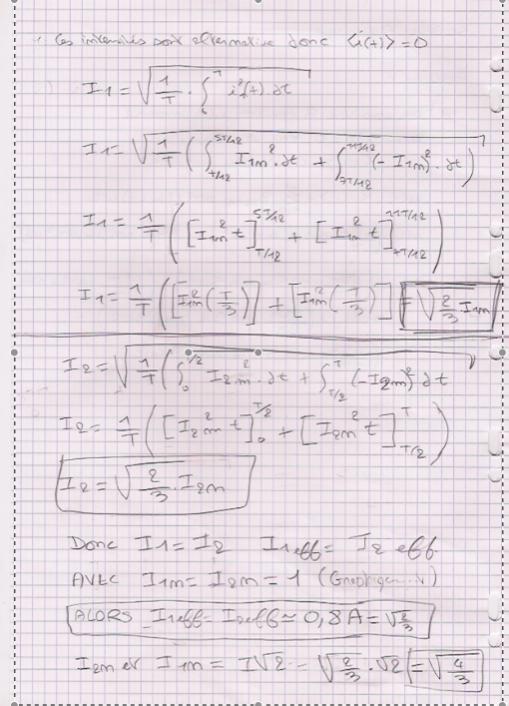 Ces intensités sont alternative donc <i(t)> = 0
I1 = √(1/T · ∫₀^T i²(t) dt)
I1 = √(1/T (∫_{T/12}^{5T/12} I1m² · dt + ∫_{7T/12}^{11T/12} (-I1m)² · dt))
I1 = 1/T ([I1m² t]_{T/12}^{5T/12} + [I1m² t]_{7T/12}^{11T/12})
I1 = 1/T ([I1m² (T/3)] + [I1m² (T/3)]) = √(2/3) · I1m
I2 = √(1/T (∫₀^{T/2} I2m² · dt + ∫_{T/2}^T (-I2m)² dt))
I2 = 1/T ([I2m² t]₀^{T/2} + [I2m² t]_{T/2}^T)
I2 = √(2/3) · I2m
Donc I1 = I2 I1eff = I2 eff
AVEC I1m = I2m = 1
ALORS I1eff = I2eff ≃ 0,8 A = √(2/3)
I2m et I1m = I√2 = √(2/3) · √2 = √(4/3)